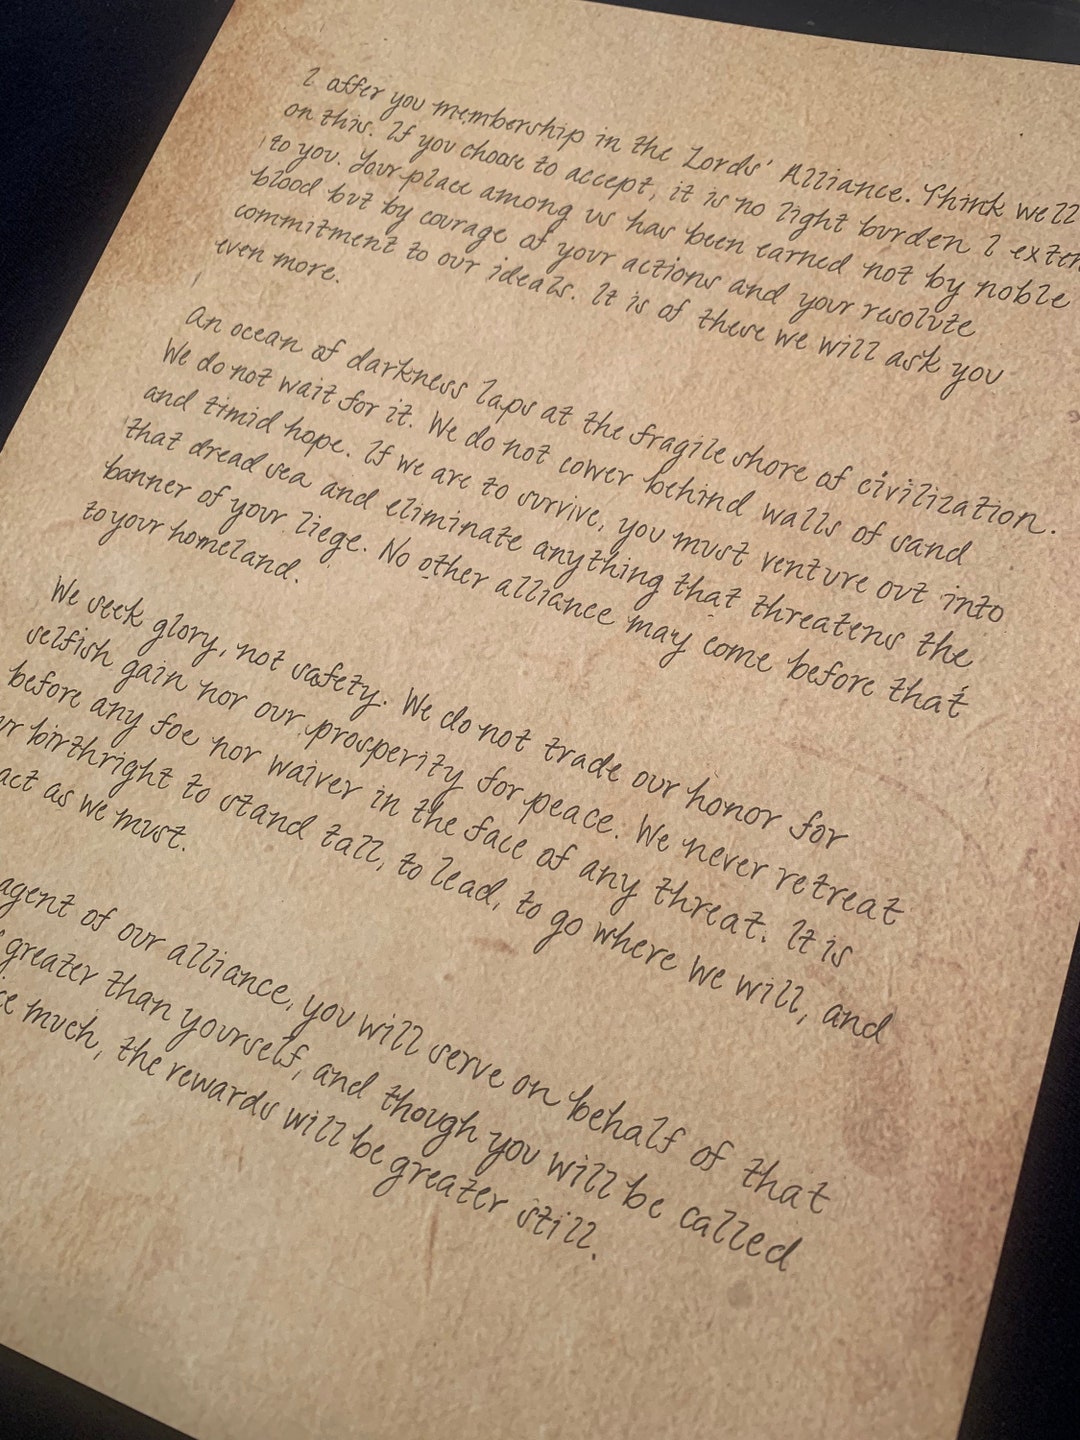 I offer you membership in the Lords' Alliance. Think well
on this. If you choose to accept, it is no light burden I
to you. Your place among us has been earned not by noble
blood but by courage of your actions and your resolute
commitment to our ideals. It is of these we will ask you
even more.
An ocean of darkness laps at the fragile shore of civilization.
We do not wait for it. We do not cower behind walls of sand
and timid hope. If we are to survive, you must venture out into
that dread sea and eliminate anything that threatens the
banner of your liege. No other alliance may come before that
to your homeland.
We seek glory, not safety. We do not trade our honor for
selfish gain nor our prosperity for peace. We never retreat
before any foe nor waiver in the face of any threat. It is
birthright to stand tall, to lead, to go where we will, and
act as we must.
agent of our alliance, you will serve on behalf of that
greater than yourself, and though you will be called
much, the rewards will be greater still.